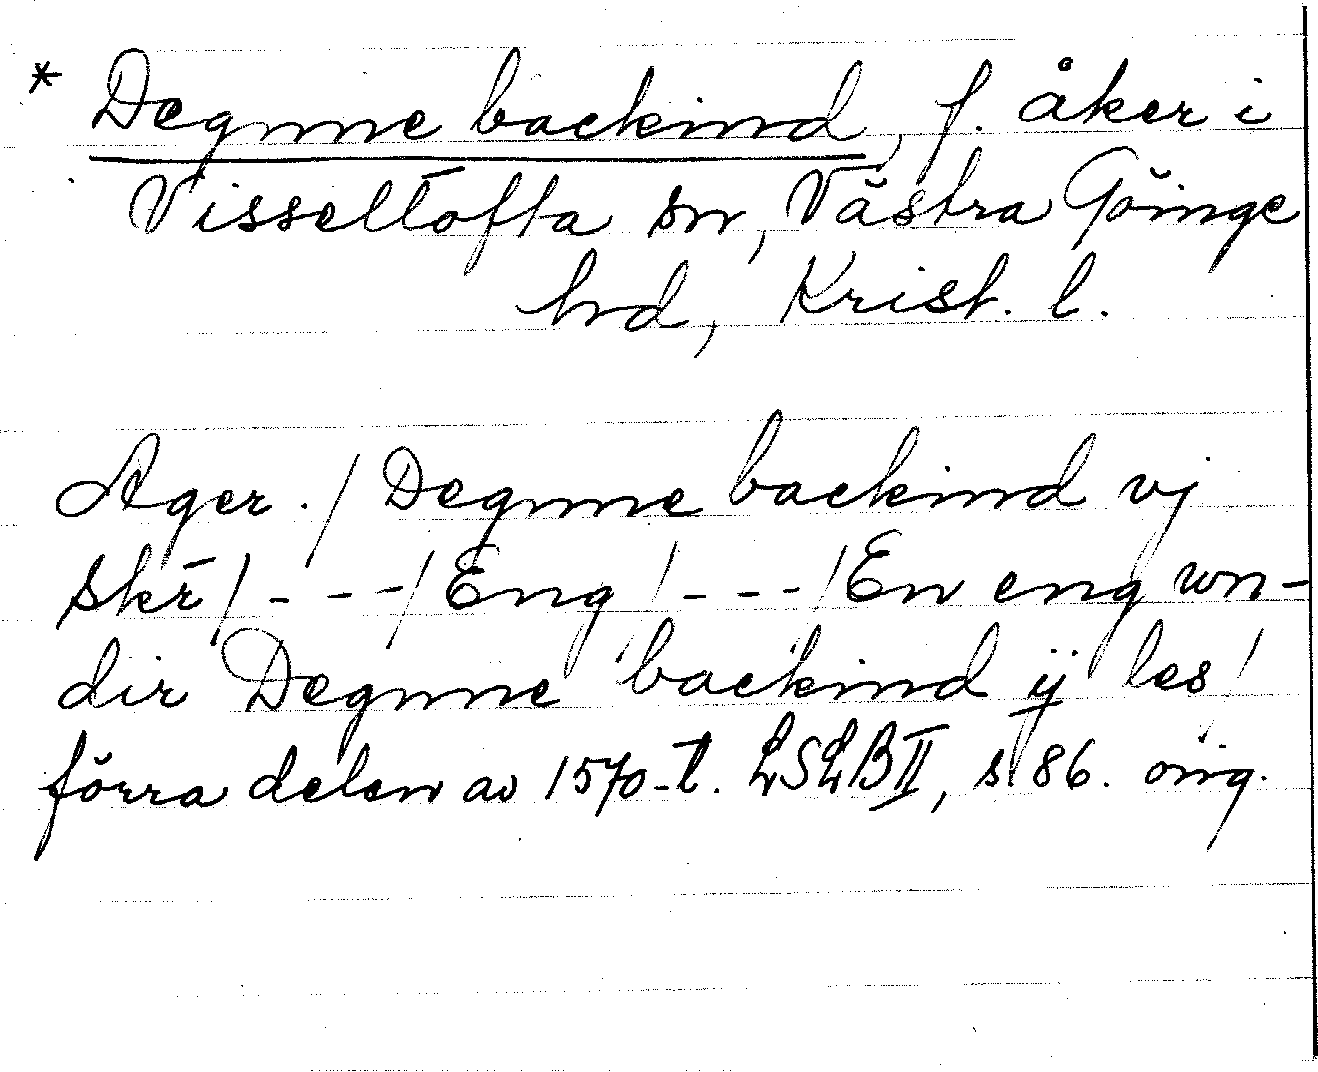 * Degnne backind, f. åker i
Visseltofta sn, Västra Göinge
hd, Krist. l.
Ager. / Degnne backind vj
skr̄ / - - - / Eng / - - - / En eng wn-
dir Degnne backind ij les /
förra delen av 1570-t. LSLB II, s 86. orig.